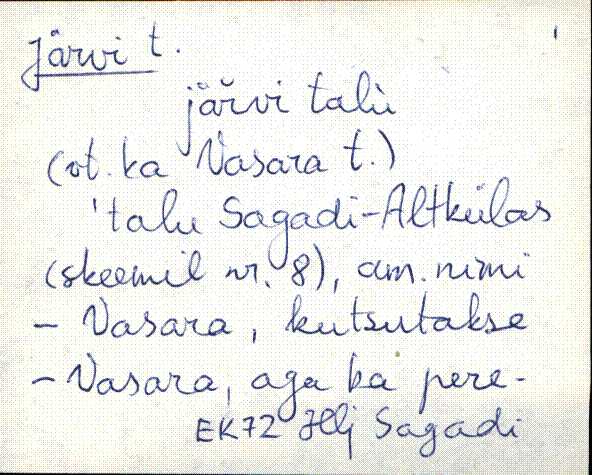 Järvi t.
jäřvi talù
(vt. ka Vasara t.)
'talu Sagadi-Altkülas
(skeemil nr. 8), am. nimi
- Vasara, kutsutakse
- Vasara, aga ka pere-
EK72 Hlj Sagadi